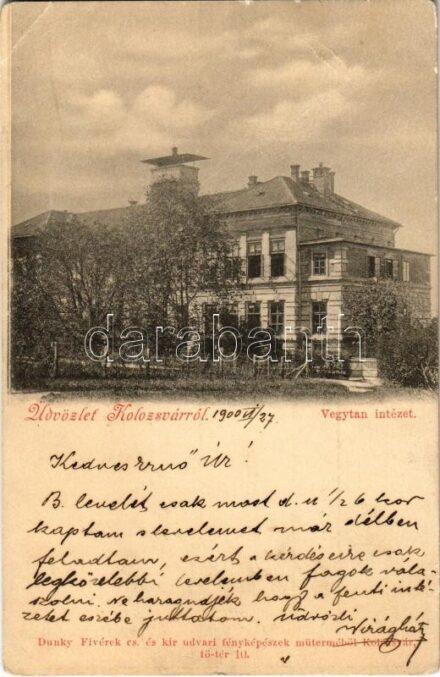 darabanth
Üdvözlet Kolozsvárról. 1900 VI/27
Vegytan intézet.
Kedves Ernő Úr!
B. levelét csak most d. u. 1/2 6 kor
kaptam s levelemet már délben
feladtam, ezért a kérdéseire csak
legközelebbi levelemben fogok vála-
szolni. Ne haragudjék hogy a fenti inté-
zetet eszébe juttatom. Üdvözli
Virágház
Dunky Fivérek cs. és kir udvari fényképészek műterméből Kolozsvár,
fő-tér 10.